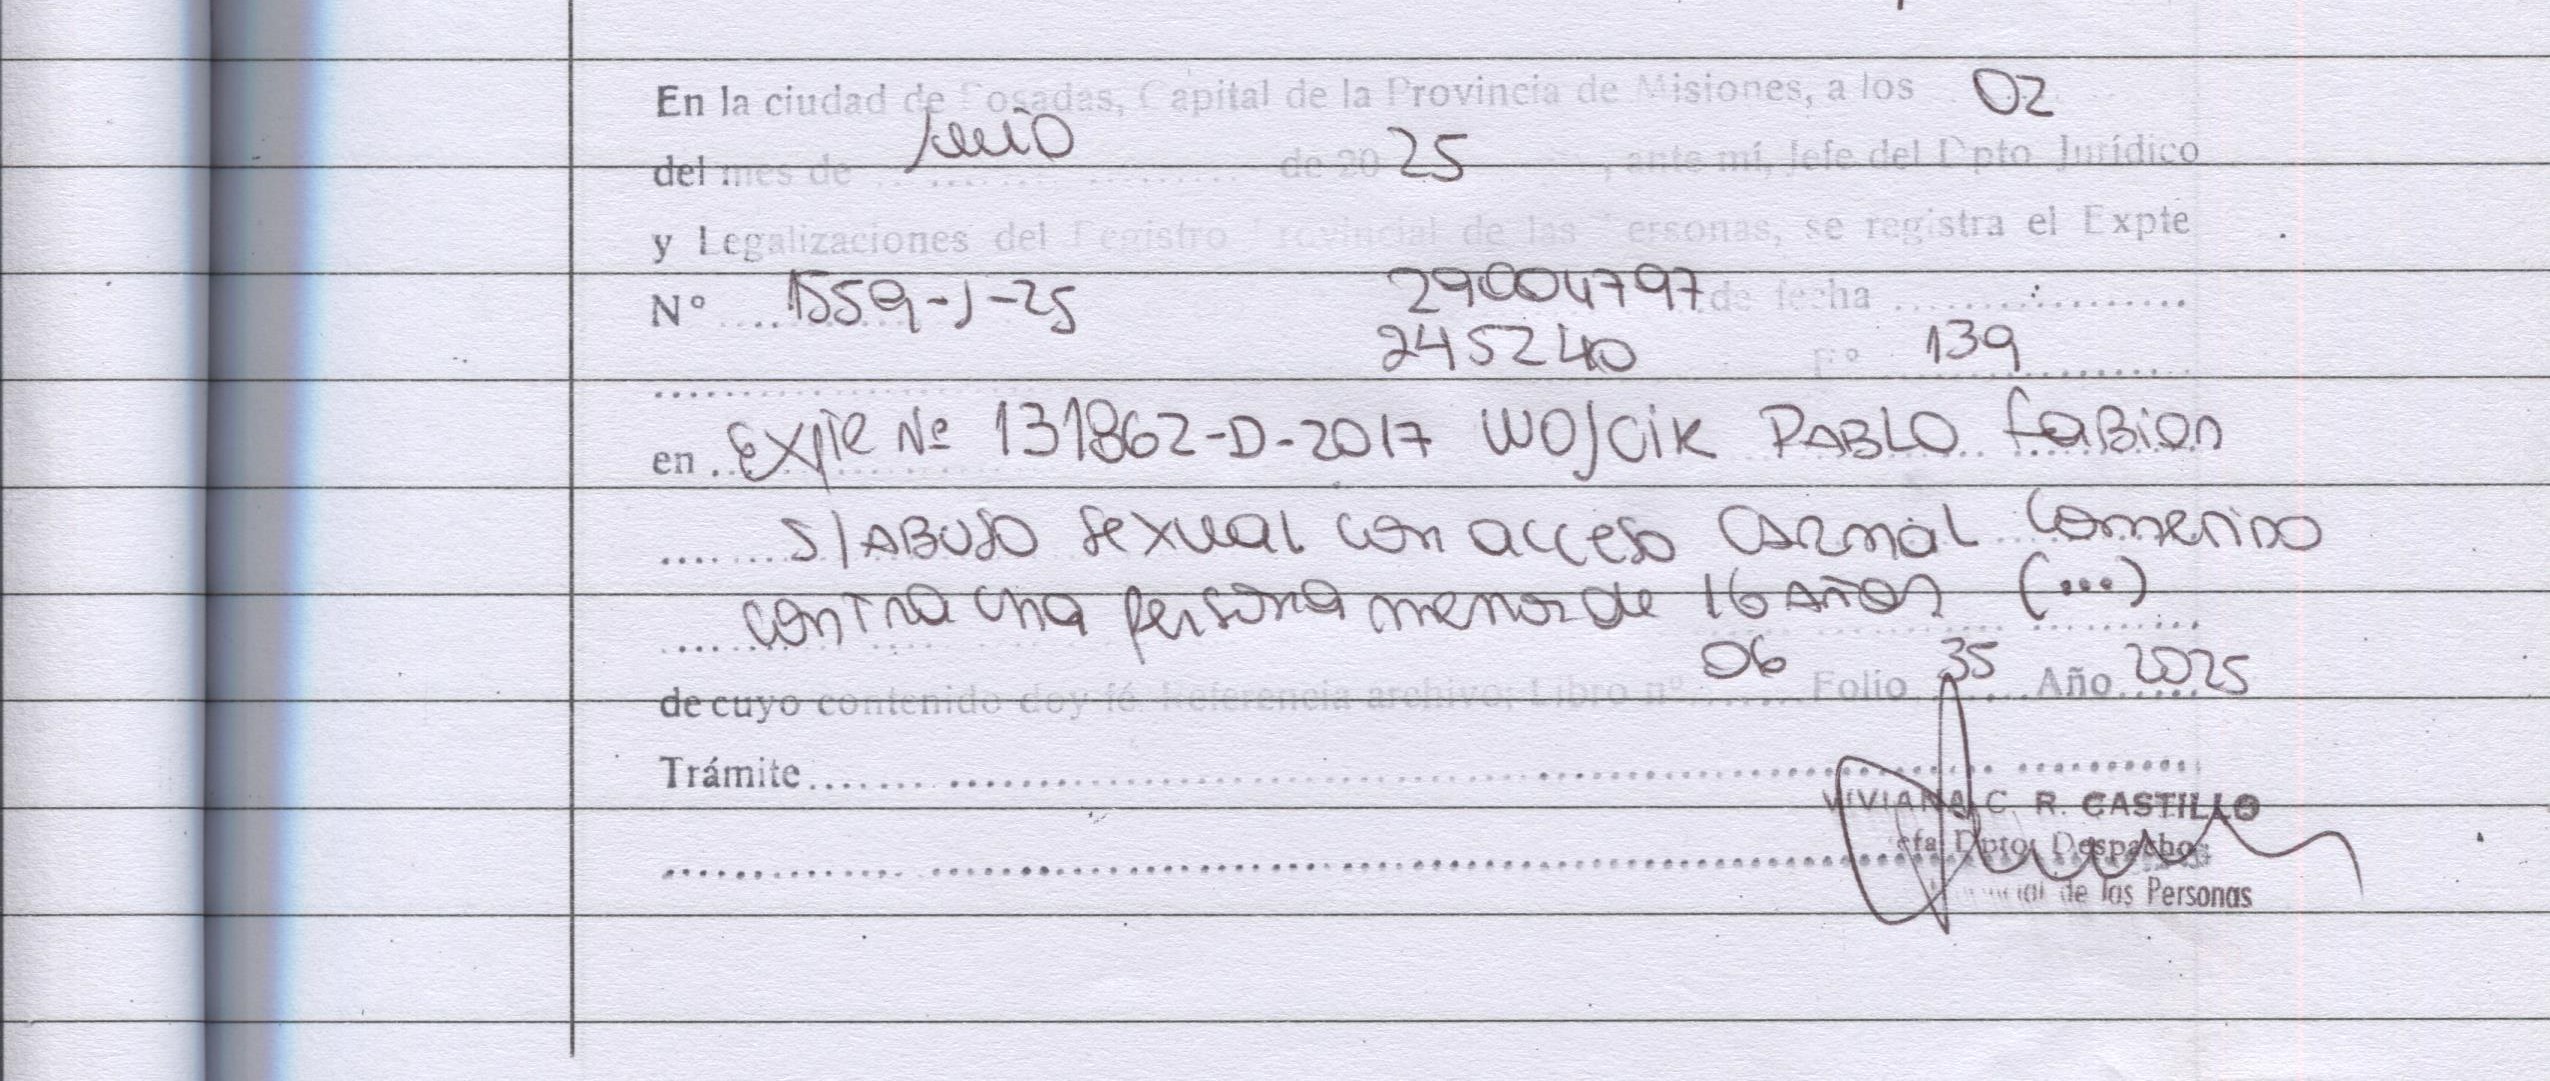 En la ciudad de Posadas, Capital de la Provincia de Misiones, a los 02
del mes de Junio de 2025, ante mí, Jefe del Dpto Jurídico
y Legalizaciones del Registro Provincial de las Personas, se registra el Expte
Nº 1559-J-25 29004797 de fecha
245240 Fº 139
en Expte Nº 131862-D-2017 WOJCIK PABLO FABIAN
S/ABUSO sexual con acceso carnal cometido
contra una persona menor de 16 AÑOS (...)
de cuyo contenido doy fé Referencia archivo: Libro nº 06 Folio 35 Año 2025
Trámite
VIVIANA C. R. CASTILLO
Jefa Dpto. Despacho
de las Personas